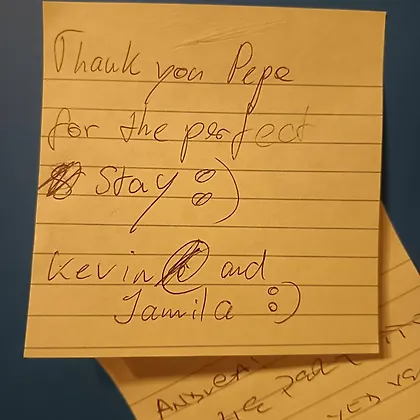 Thank you Pepe
for the perfect
Stay :)
Kevin and
Jamila :)
ANDREA
the